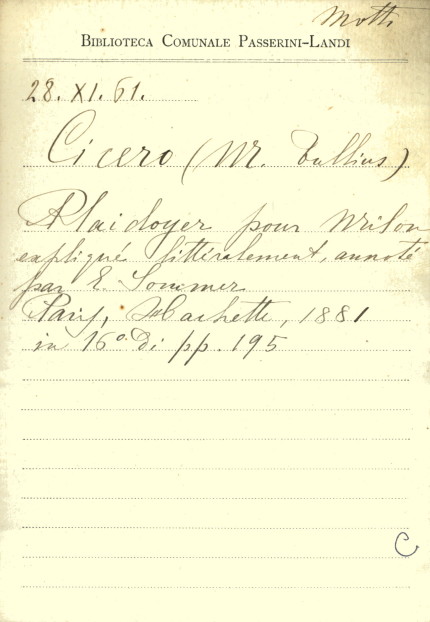 Motti
BIBLIOTECA COMUNALE PASSERINI-LANDI
28. XI. 61.
Cicero (M. Tullius)
Plaidoyer pour Milon
expliqué littéralement, annoté
par E. Sommer
Paris, Hachette, 1881
in 16º di pp. 195
C